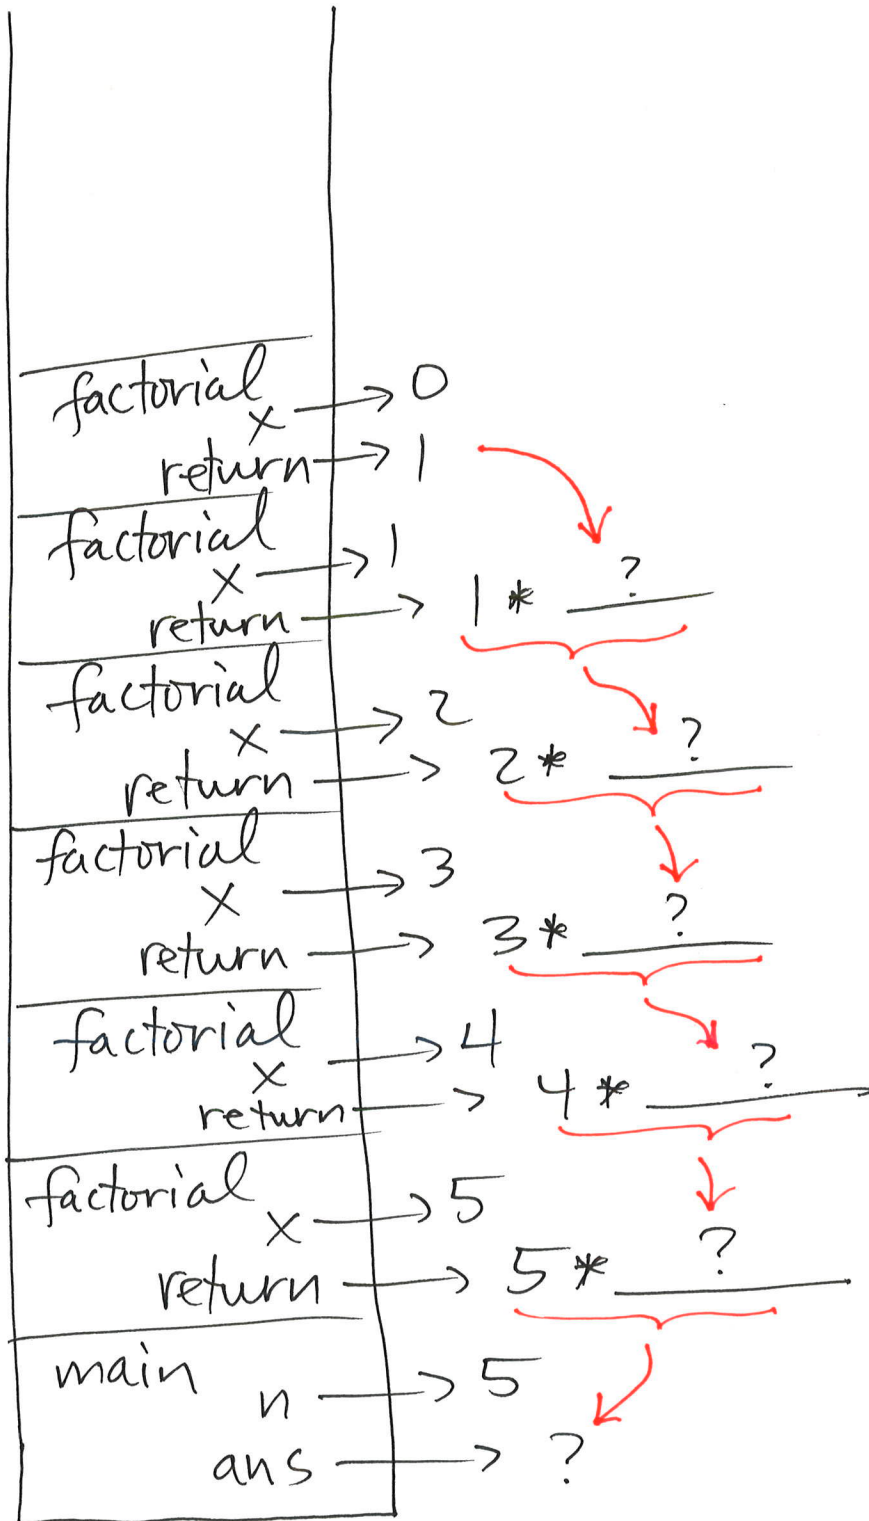 factorial
x → 0
return → 1
factorial
x → 1
return → 1 * ?
factorial
x → 2
return → 2 * ?
factorial
x → 3
return → 3 * ?
factorial
x → 4
return → 4 * ?
factorial
x → 5
return → 5 * ?
main
n → 5
ans → ?